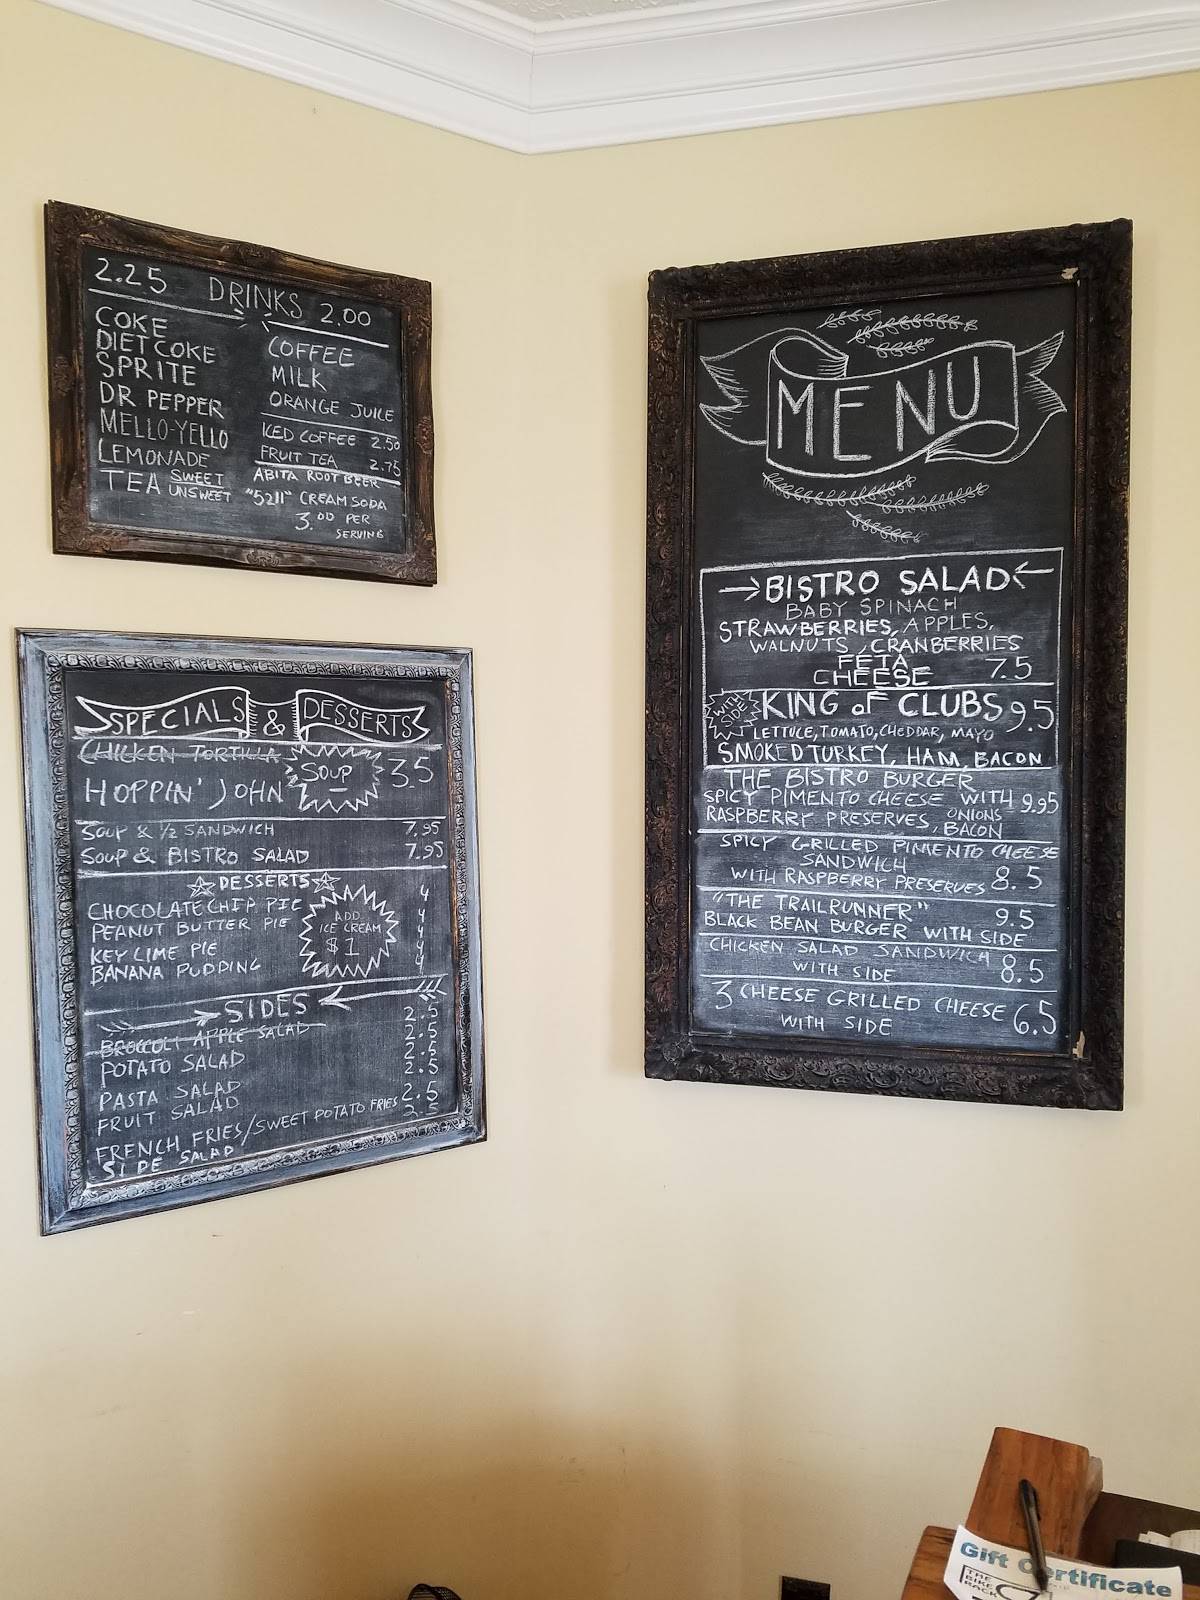 2.25 DRINKS 2.00
COKE
DIET COKE
SPRITE
DR PEPPER
MELLO-YELLO
LEMONADE
TEA SWEET
UNSWEET
COFFEE
MILK
ORANGE JUICE
ICED COFFEE 2.50
FRUIT TEA 2.75
ABITA ROOT BEER
"5211" CREAM SODA
3.00 PER
SERVING
SPECIALS & DESSERTS
CHICKEN TORTILLA
HOPPIN' JOHN
SOUP
3.5
SOUP & 1/2 SANDWICH 7.95
SOUP & BISTRO SALAD 7.95
DESSERTS
CHOCOLATE CHIP PIE 4
PEANUT BUTTER PIE 4
KEY LIME PIE 4
BANANA PUDDING 4
ADD
ICE CREAM
$1
SIDES
BROCCOLI APPLE SALAD 2.5
POTATO SALAD 2.5
PASTA SALAD 2.5
FRUIT SALAD 2.5
FRENCH FRIES/SWEET POTATO FRIES 2.5
SIDE SALAD 2.5
MENU
BISTRO SALAD
BABY SPINACH
STRAWBERRIES, APPLES,
WALNUTS, CRANBERRIES
FETA
CHEESE 7.5
WITH
SIDE
KING OF CLUBS 9.5
LETTUCE, TOMATO, CHEDDAR, MAYO
SMOKED TURKEY, HAM, BACON
THE BISTRO BURGER
SPICY PIMENTO CHEESE WITH 9.95
RASPBERRY PRESERVES, ONIONS
BACON
SPICY GRILLED PIMENTO CHEESE
SANDWICH
WITH RASPBERRY PRESERVES 8.5
"THE TRAILRUNNER" 9.5
BLACK BEAN BURGER WITH SIDE
CHICKEN SALAD SANDWICH
WITH SIDE 8.5
3 CHEESE GRILLED CHEESE 6.5
WITH SIDE
Gift Certificate
THE
BIKE
RACK